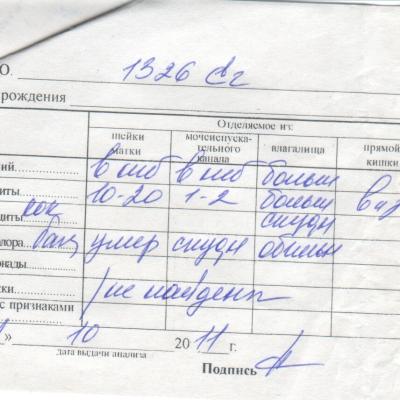 О. 1326
рождения
Отделяемое из:
шейки матки мочеиспускательного канала влагалища прямой кишки
ний в п/зр в п/зр больш
иты 10-20 1-2 больш
диты скудн
лора умер скудн обильн
онады
ки не найдены
с признаками
» 10 20 11 г.
дата выдачи анализа
Подпись